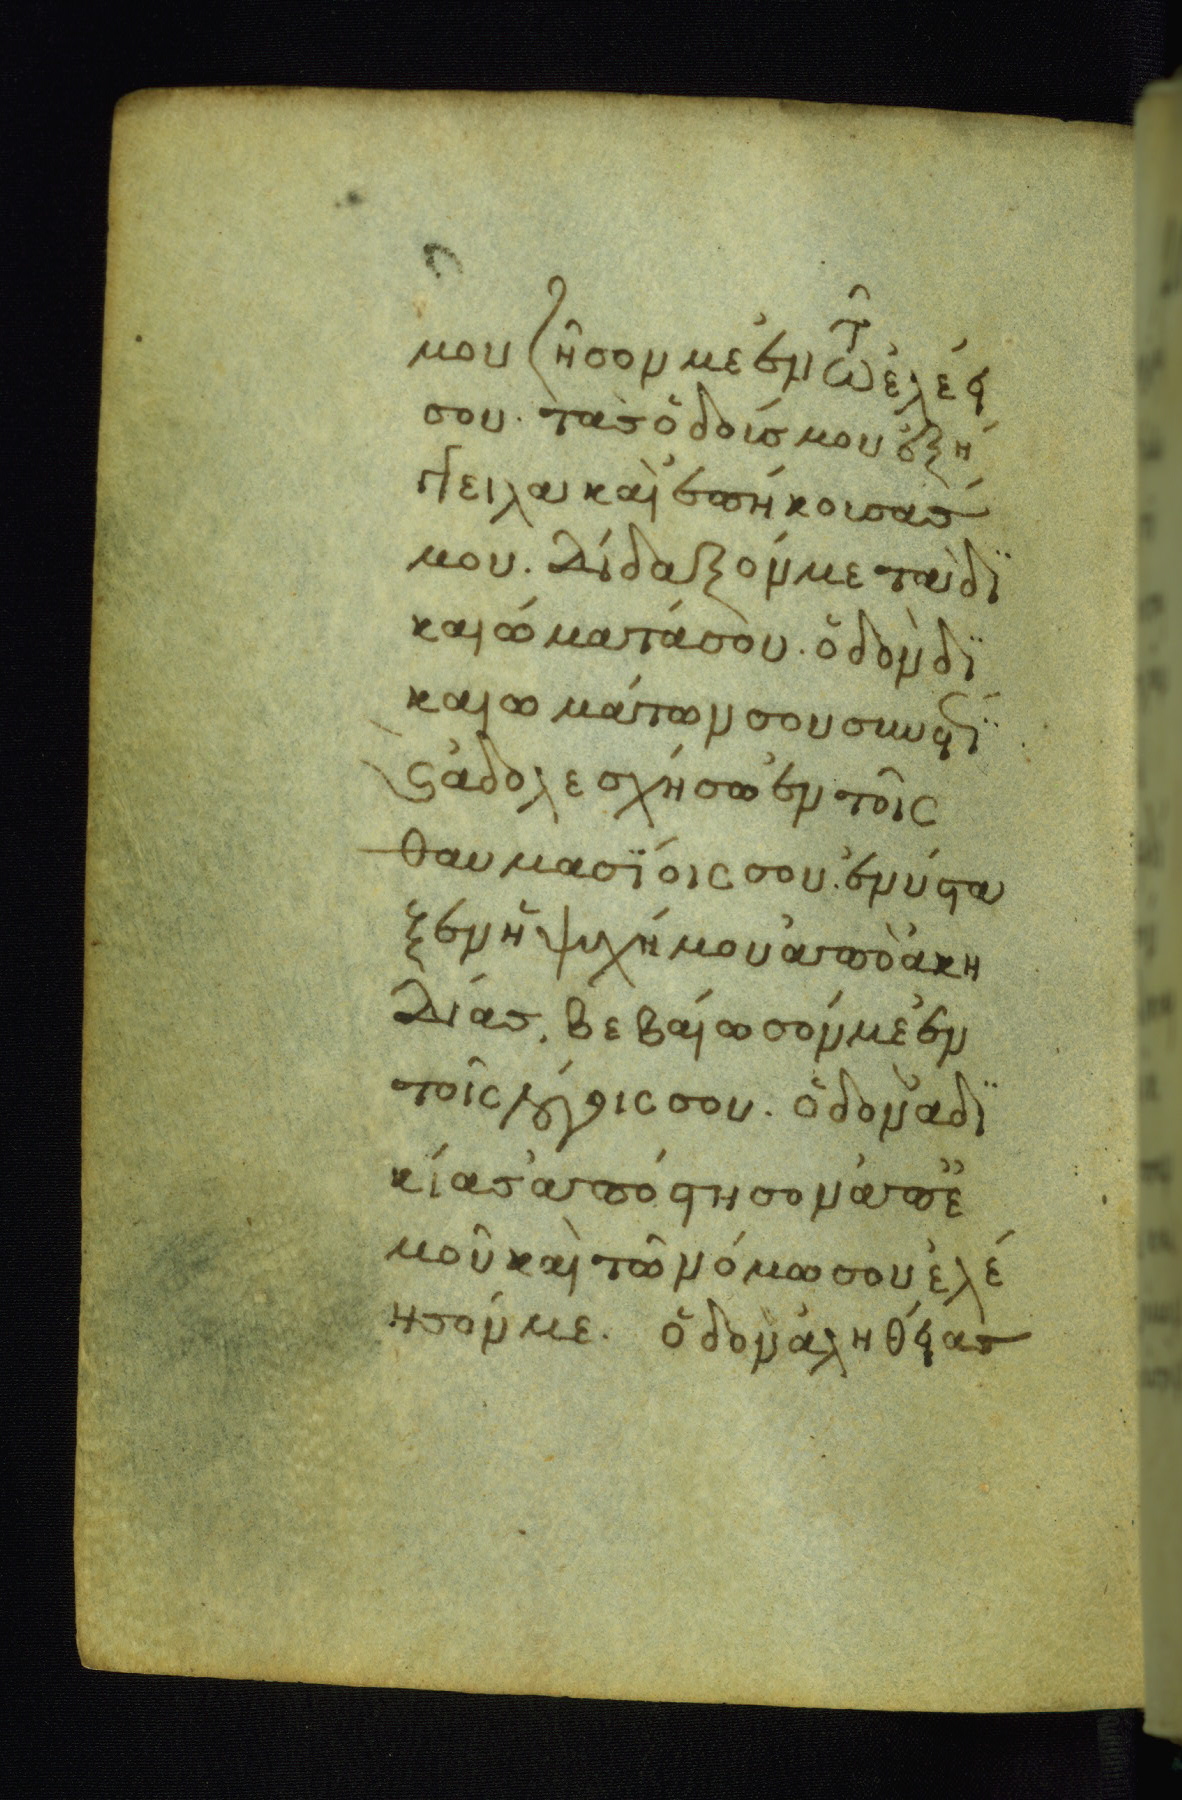 μου ζῆσόν με ἐν τῶ ἐλέει
σου. τὰσ ὁδούσ μου ἐξή
γγειλα καὶ ἐπήκουσάσ
μου. Δίδαξόν με τὰ δϊ
καιώματά σου. ὁδὸν δϊ
καιωμάτων σου συνέτϊ
σ ἀδολεσχήσω ἐν τοῖς
θαυμασϊοις σου. ἐνύστα
ξεν ἡ ψυχή μου ἀπὸ ἀκη
Δίασ. βεβαίωσόν με ἐν
τοῖς λόγοις σου. ὁδὸν ἀδϊ
κίασ ἀπόστησον ἀπ' ἐ
μοῦ καὶ τῶ νόμω σου ἐλέ
ησόν με. ὁδὸν ἀληθείασ